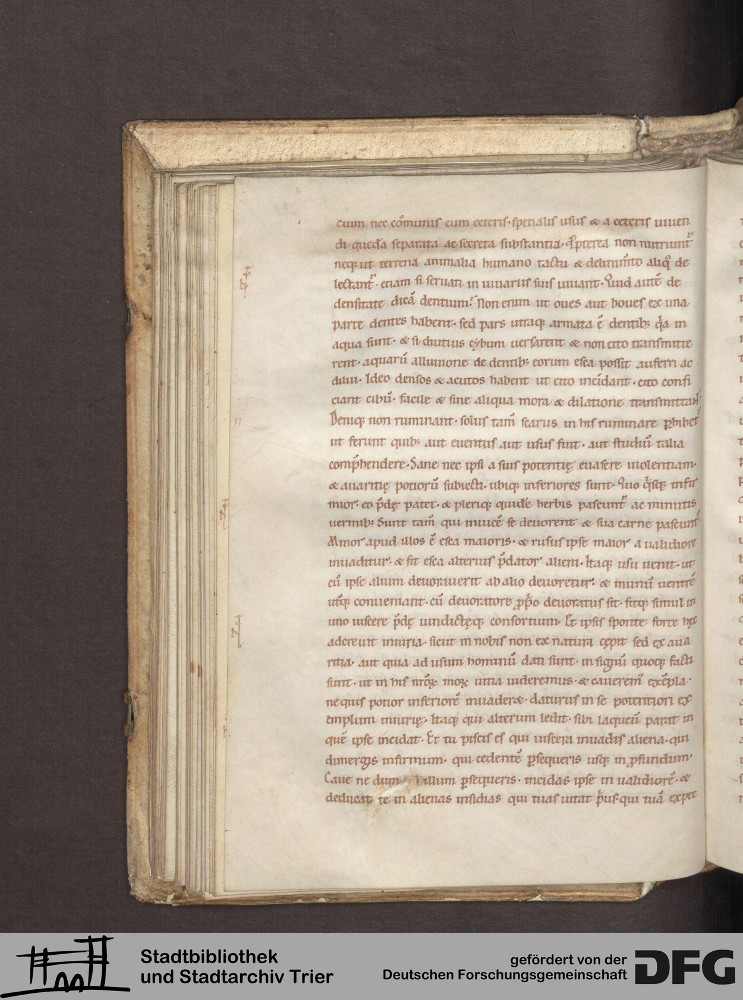 cium nec cōmunis cum ceteris· specialis usus & a ceteris uiuen
di quędā separata ac secreta substantia· Ppterea non nutriunt᷑
neq; ut terrena animalia humano tactu & delinim̄to aliq̊ de
lectant᷑· etiam si seruati in uiuariis suis uiuant· Quid autē de
densitate dicā dentium? Non enim ut oues aut boues ex una
parte dentes habent· sed pars utraq; armata ē dentib; q̄a in
aqua sunt· & si diutius cybum uersarent & non cito transmitte
rent· aquarū alluuione de dentib; eorum esca possit auferri ac
dilui· Ideo densos & acutos habent ut cito incidant· cito confi
ciant cibū· facile & sine aliqua mora & dilatione transmittant·
Deniq; non ruminant· solus tam̄ scarus in his ruminare phibet᷑
ut ferunt quib; aut euentus aut usus fuit· aut studiū talia
comp̄hendere· Sane nec ipsi a suis potentię euasere uiolentiam·
& auaritię potiorū subiecti· ubiq; inferiores sunt· Quo q̄sq; infir
mior· eo p̄dę patet· & pleriq; quidē herbis pascunt᷑ ac minutis
uermib; Sunt tam̄ qui inuicē se deuorent & sua carne pascunt᷑
Minor apud illos ē esca maioris· & rursus ipse maior a ualidiore
inuaditur· & fit esca alterius p̄dator alieni· Itaq; usu uenit· ut
cū ipse alium deuorauerit ab alio deuoretur· & in unū ventrē
utq; conueniant· cū deuoratore pprio deuoratus sit· fitq; simul in
uno uiscere p̄dę uindictęq; consortium· Et ipsis sponte forte hęc
adcreuit iniuria· sicut in nobis non ex natura cępit sed ex aua
ritia· aut quia ad usum hominū dati sunt· in signū quoq; facti
sunt· ut in his nr̄oꝝ moꝝ uitia uideremus· & cauerem᷒ exēpla·
ne quis potior inferiorē inuaderet· daturus in se potentiori ex
emplum iniurię· Itaq; qui alterum ledit· sibi laqueū parat in
quē ipse incidat· Et tu piscis es qui uiscera inuadis aliena· qui
dimergis infirmum· qui cedentē psequeris usq; in pfundum·
Caue ne dum illum psequeris· incidas ipse in ualidiorē· &
deducat te in alienas insidias qui tuas uitat p̄us· qui tuā expec
Stadtbibliothek
und Stadtarchiv Trier
gefördert von der
Deutschen Forschungsgemeinschaft
DFG